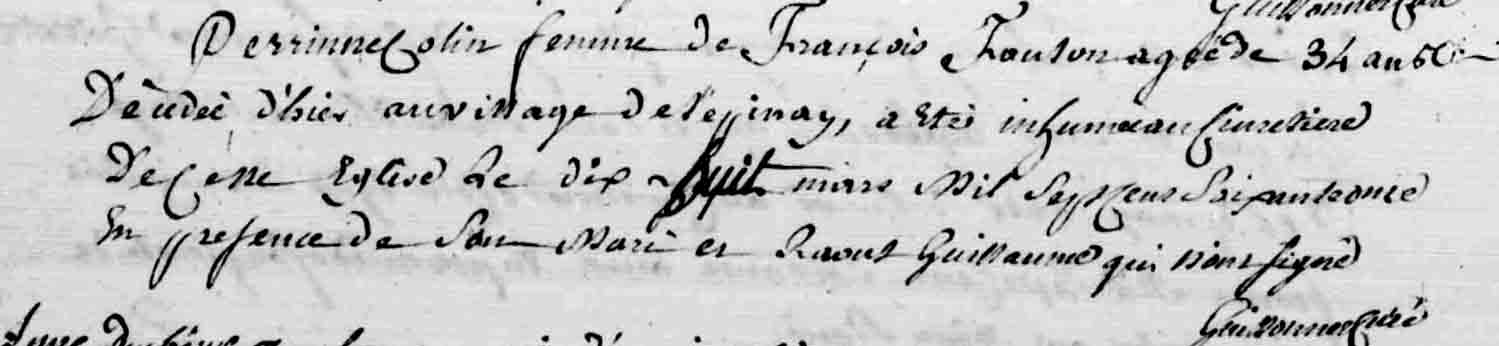 Guillonner Curé
Perrinne Colin femme de François Fauson agéé de 34 ans
Décedeé d'hier au village de l'epinay, a Eté inhumée au Cimetiere
De Cette Eglise Le dix huit mars Mil Sept Cent Soixante onze
En presence de Son Mari et Raoul Guillaume qui n'ont signé
Guillonner Curé